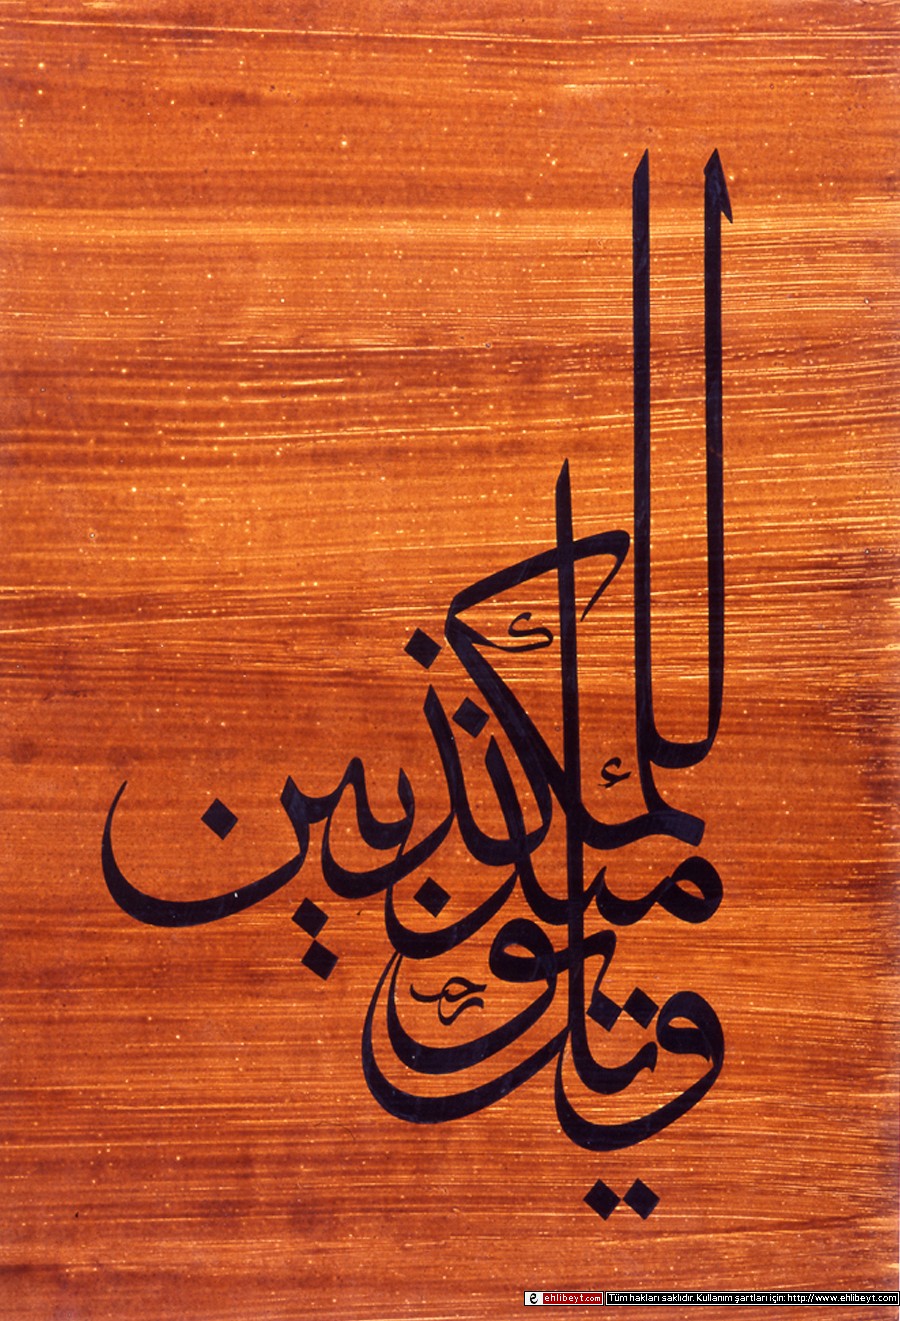 ويل يومئذ للمكذبين
ehlibeyt.com Tüm hakları saklıdır. Kullanım şartları için: http://www.ehlibeyt.com